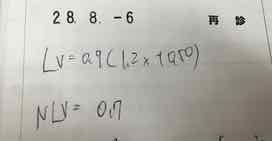 28. 8. -6 再 診
LV = 0.9 (1.2 x + 0.50)
NLV = 0.7